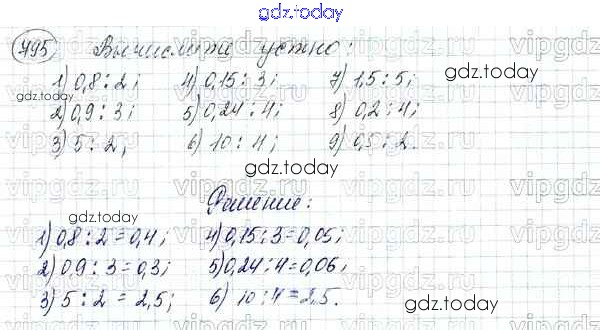 gdz.today
795 Вычислите устно:
1) 0,8 : 2; 4) 0,15 : 3; 7) 1,5 : 5;
2) 0,9 : 3; 5) 0,24 : 4; 8) 0,2 : 4;
3) 5 : 2; 6) 10 : 4; 9) 0,5 : 2.
gdz.today
gdz.today
gdz.today
Решение:
gdz.today
1) 0,8 : 2 = 0,4; 4) 0,15 : 3 = 0,05;
2) 0,9 : 3 = 0,3; 5) 0,24 : 4 = 0,06;
3) 5 : 2 = 2,5; 6) 10 : 4 = 2,5.
gdz.today